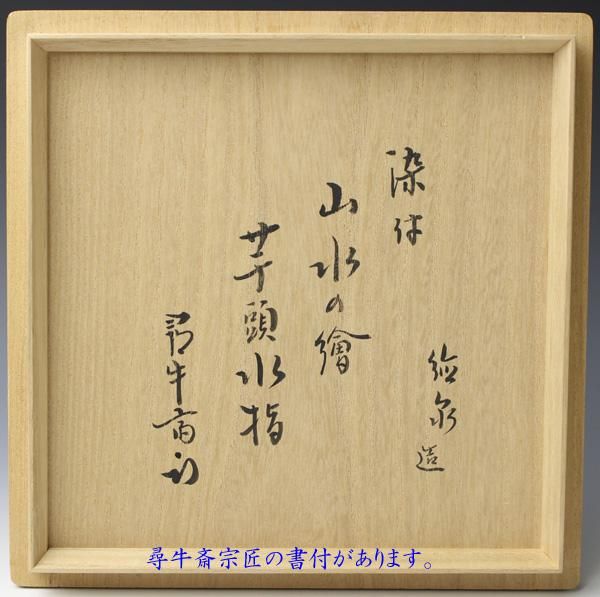 染付
山水の繪
芋頭水指
尋牛斎
造
尋牛斎宗匠の書付があります。